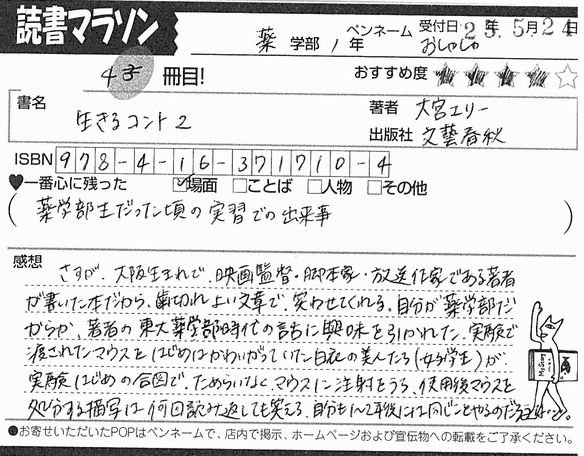 読書マラソン
薬 学部 1年
ペンネーム おしゃしゃ
受付日: 25年5月24日
4 冊目!
おすすめ度 ★★★★☆
書名
生きるコント2
著者 大宮エリー
出版社 文藝春秋
ISBN 978-4-16-371710-4
♥一番心に残った ☑場面 □ことば □人物 □その他
(薬学部生だった頃の実習での出来事)
感想
さすが、大阪生まれで、映画監督・脚本家・放送作家である著者
が書いた本だから、歯切れよい文章で、笑わせてくれる。自分が薬学部だ
からか、著者の東大薬学部時代の話に興味を引かれた。実験で
渡されたマウスをはじめはかわいがっていた白衣の美人たち(女子学生)が、
実験はじめの合図で、ためらいなくマウスに注射をうち、使用後マウスを
処分する描写は何回読み返しても笑える。自分も1〜2年後には同じことやるのだろうか
●お寄せいただいたPOPはペンネームで、店内で掲示、ホームページおよび宣伝物への転載をご了承ください。